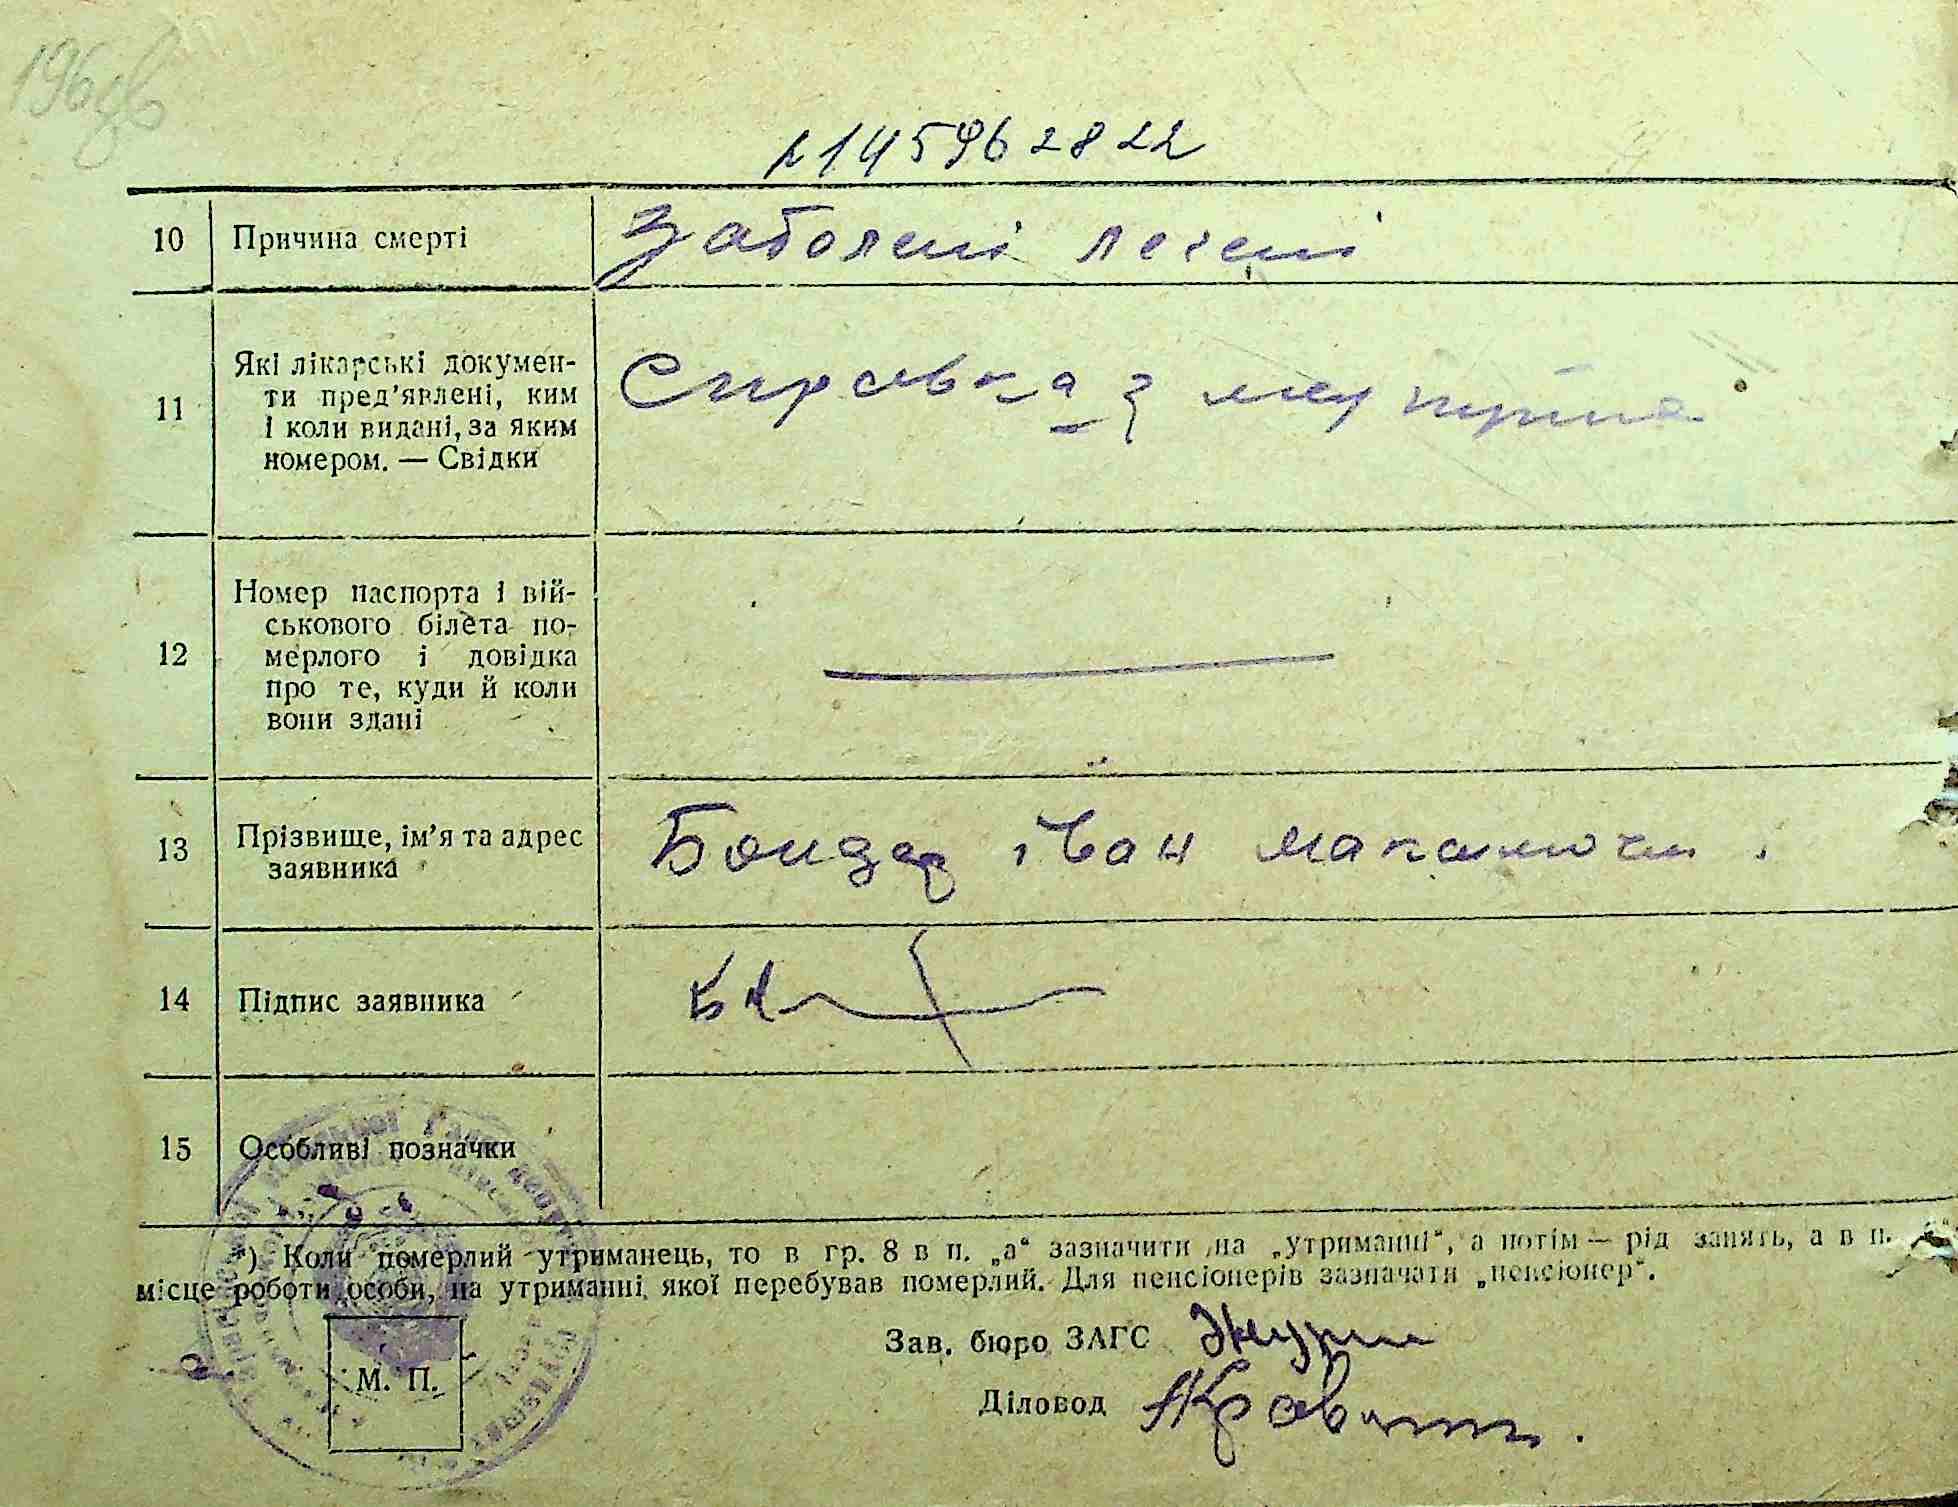 145962822
10 Причина смерті Заболені легені
Які лікарські докумен-
ти пред'явлені, ким
11 і коли видані, за яким
номером. — Свідки
Справка з мед пункта
Номер паспорта і вій-
ськового білета по-
12 мерлого і довідка
про те, куди й коли
вони здані
13 Прізвище, ім'я та адрес
заявника
Бондар іван
14 Підпис заявника
15 Особливі позначки
*) Коли померлий утриманець, то в гр. 8 в п. „а“ зазначити на „утриманні“, а потім — рід занять, а в п.
місце роботи особи, на утриманні якої перебував померлий. Для пенсіонерів зазначати „пенсіонер“.
Зав. бюро ЗАГС
М. П.
Діловод